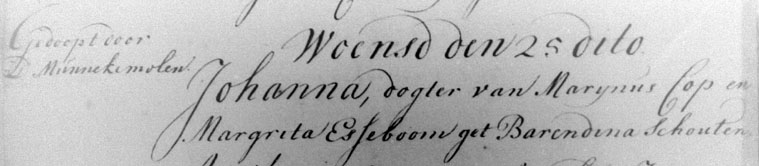 Gedoopt door
D Munnekemolen.
Woensd den 25 dito
Johanna, dogter van Marynus Cop en
Margrita Esseboom get Barendina Schouten